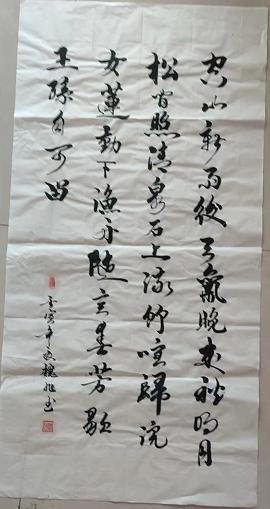 空山新雨後天氣晚来秋明月
松間照清泉石上流竹喧歸浣
女蓮動下漁舟随意春芳歇
王孫自可留
壬寅年书